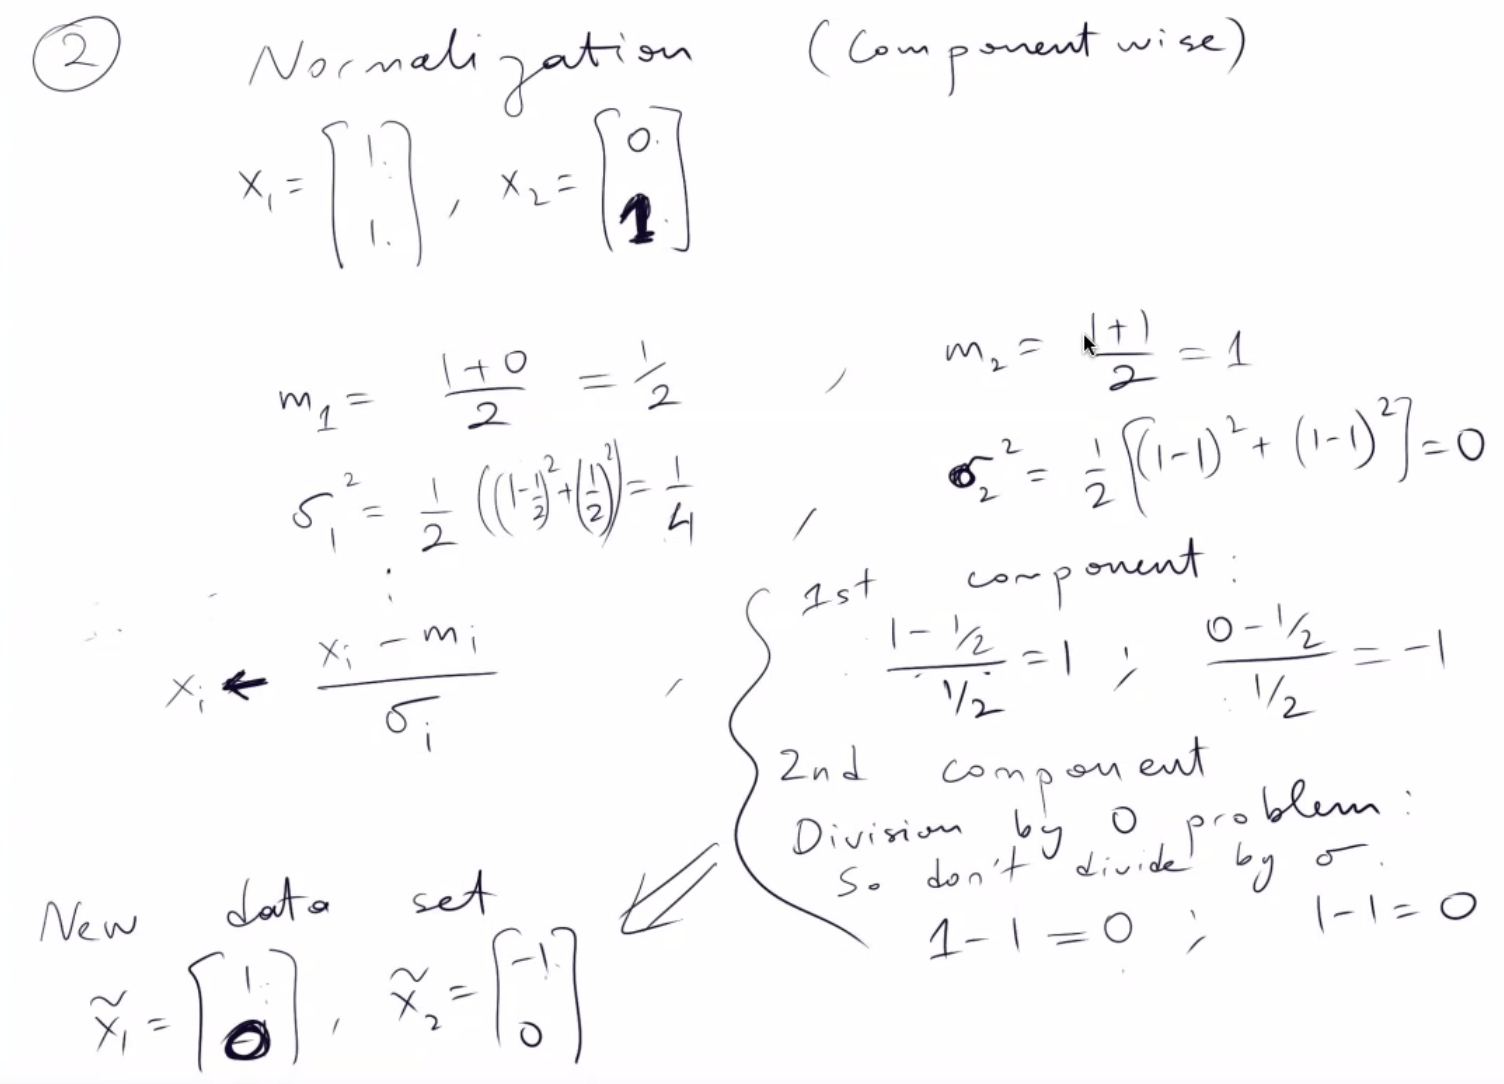 ② Normalization (Component wise)
x₁ = [1. 1.], x₂ = [0. 1.]
m₁ = (1+0)/2 = 1/2 , m₂ = (1+1)/2 = 1
σ₁² = 1/2 ((1-1/2)² + (1/2)²) = 1/4 , σ₂² = 1/2 [(1-1)² + (1-1)²] = 0
xᵢ ← (xᵢ - mᵢ)/σᵢ ,
1st component:
(1 - 1/2)/(1/2) = 1 ; (0 - 1/2)/(1/2) = -1
2nd component
Division by 0 problem:
So don't divide by σ.
1-1 = 0 ; 1-1 = 0
New data set
x̃₁ = [1. 0], x̃₂ = [-1. 0]